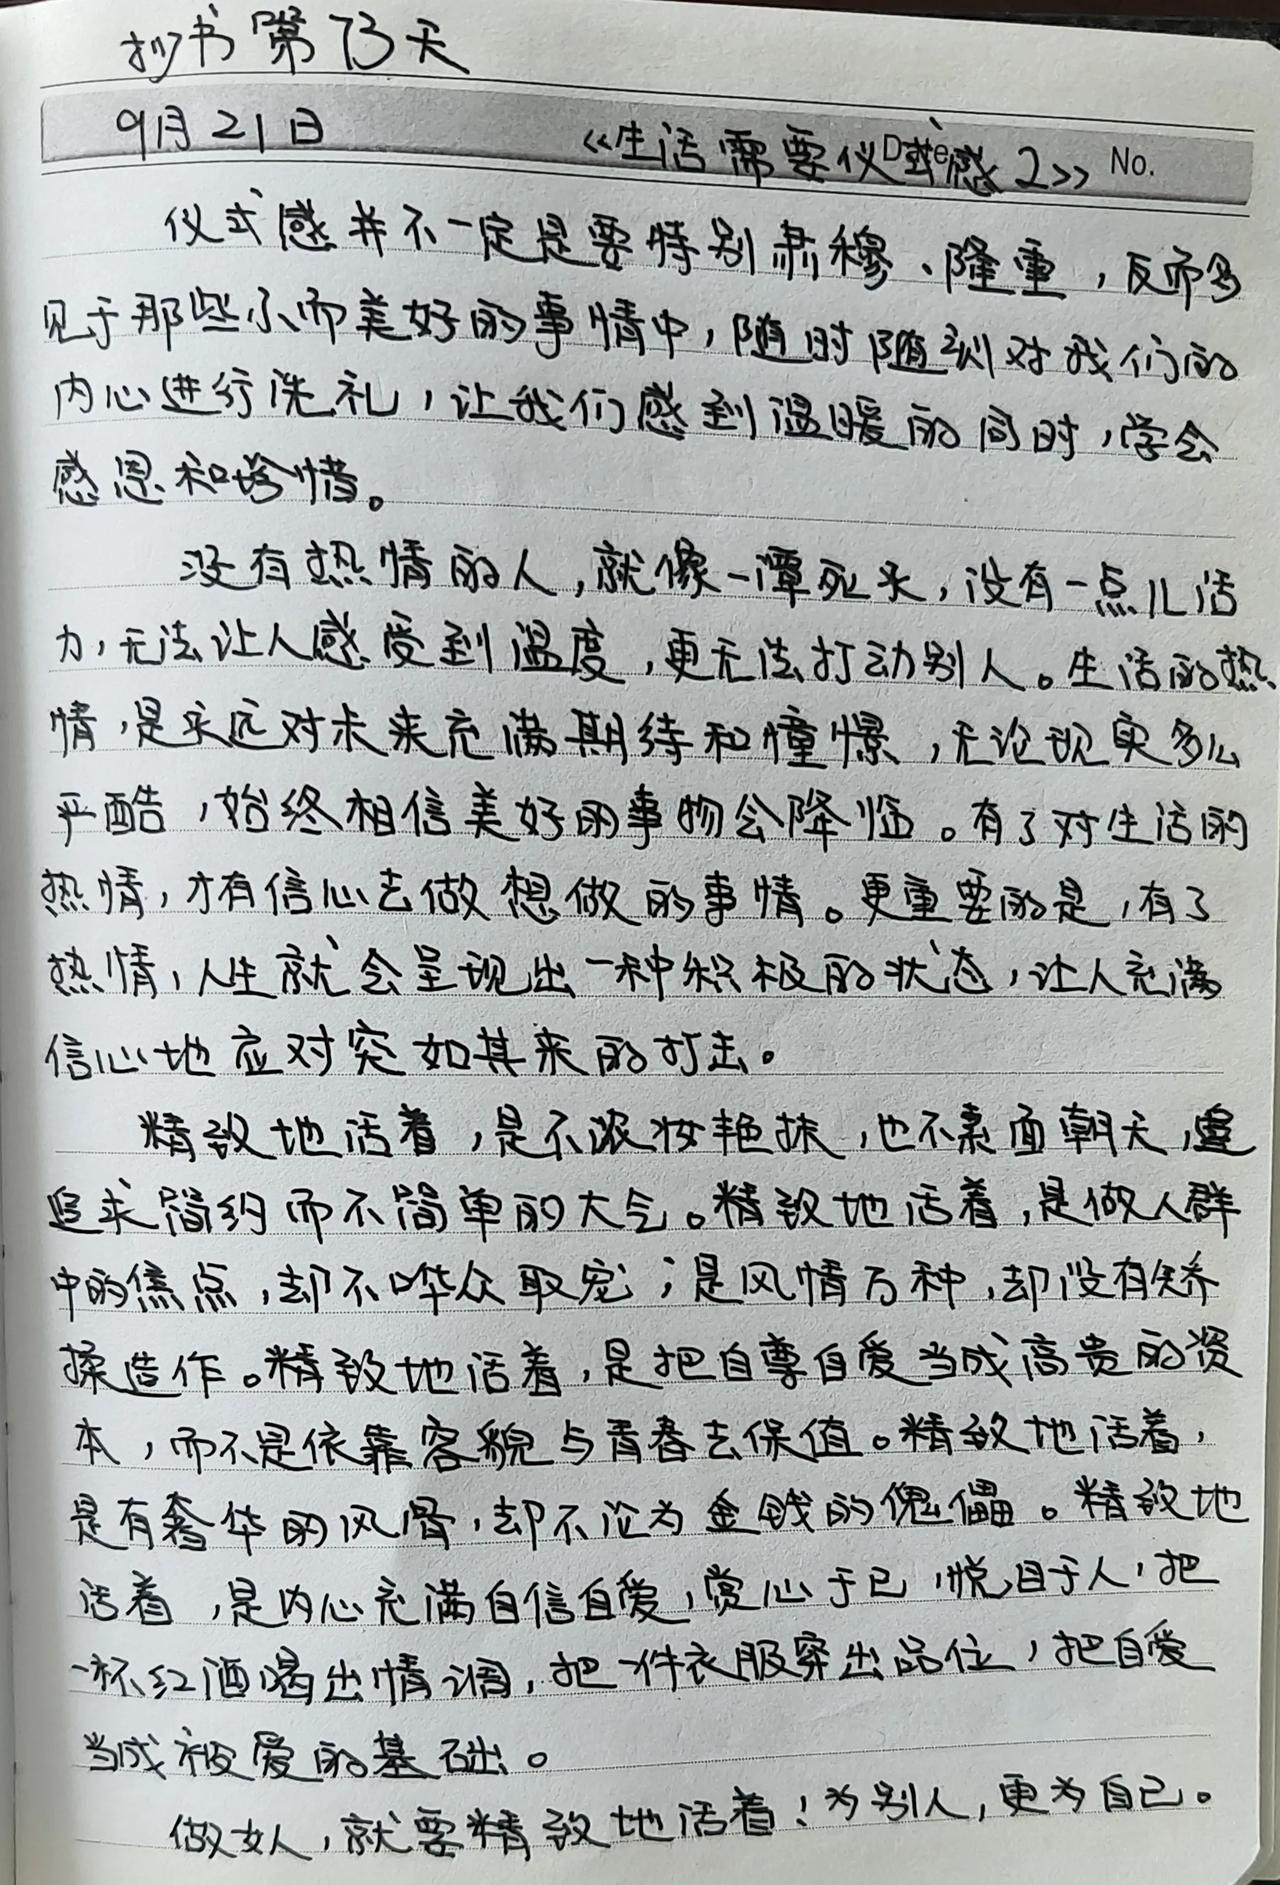 抄书第73天
9月21日 《生活需要仪式感2》 Date No.
仪式感并不一定是要特别肃穆、隆重，反而多
见于那些小而美好的事情中，随时随刻对我们的
内心进行洗礼，让我们感到温暖的同时，学会
感恩和珍惜。
没有热情的人，就像一潭死水，没有一点儿活
力，无法让人感受到温度，更无法打动别人。生活的热
情，是永远对未来充满期待和憧憬，无论现实多么
严酷，始终相信美好的事物会降临。有了对生活的
热情，才有信心去做想做的事情。更重要的是，有了
热情，人生就会呈现出一种积极的状态，让人充满
信心地应对突如其来的打击。
精致地活着，是不浓妆艳抹，也不素面朝天，
追求简约而不简单的大气。精致地活着，是做人群
中的焦点，却不哗众取宠；是风情万种，却没有矫
揉造作。精致地活着，是把自尊自爱当成高贵的资
本，而不是依靠容貌与青春去保值。精致地活着，
是有奢华的风骨，却不沦为金钱的傀儡。精致地
活着，是内心充满自信自爱，赏心于己，悦目于人，把
一杯红酒喝出情调，把一件衣服穿出品位，把自爱
当成被爱的基础。
做女人，就要精致地活着！为别人，更为自己。